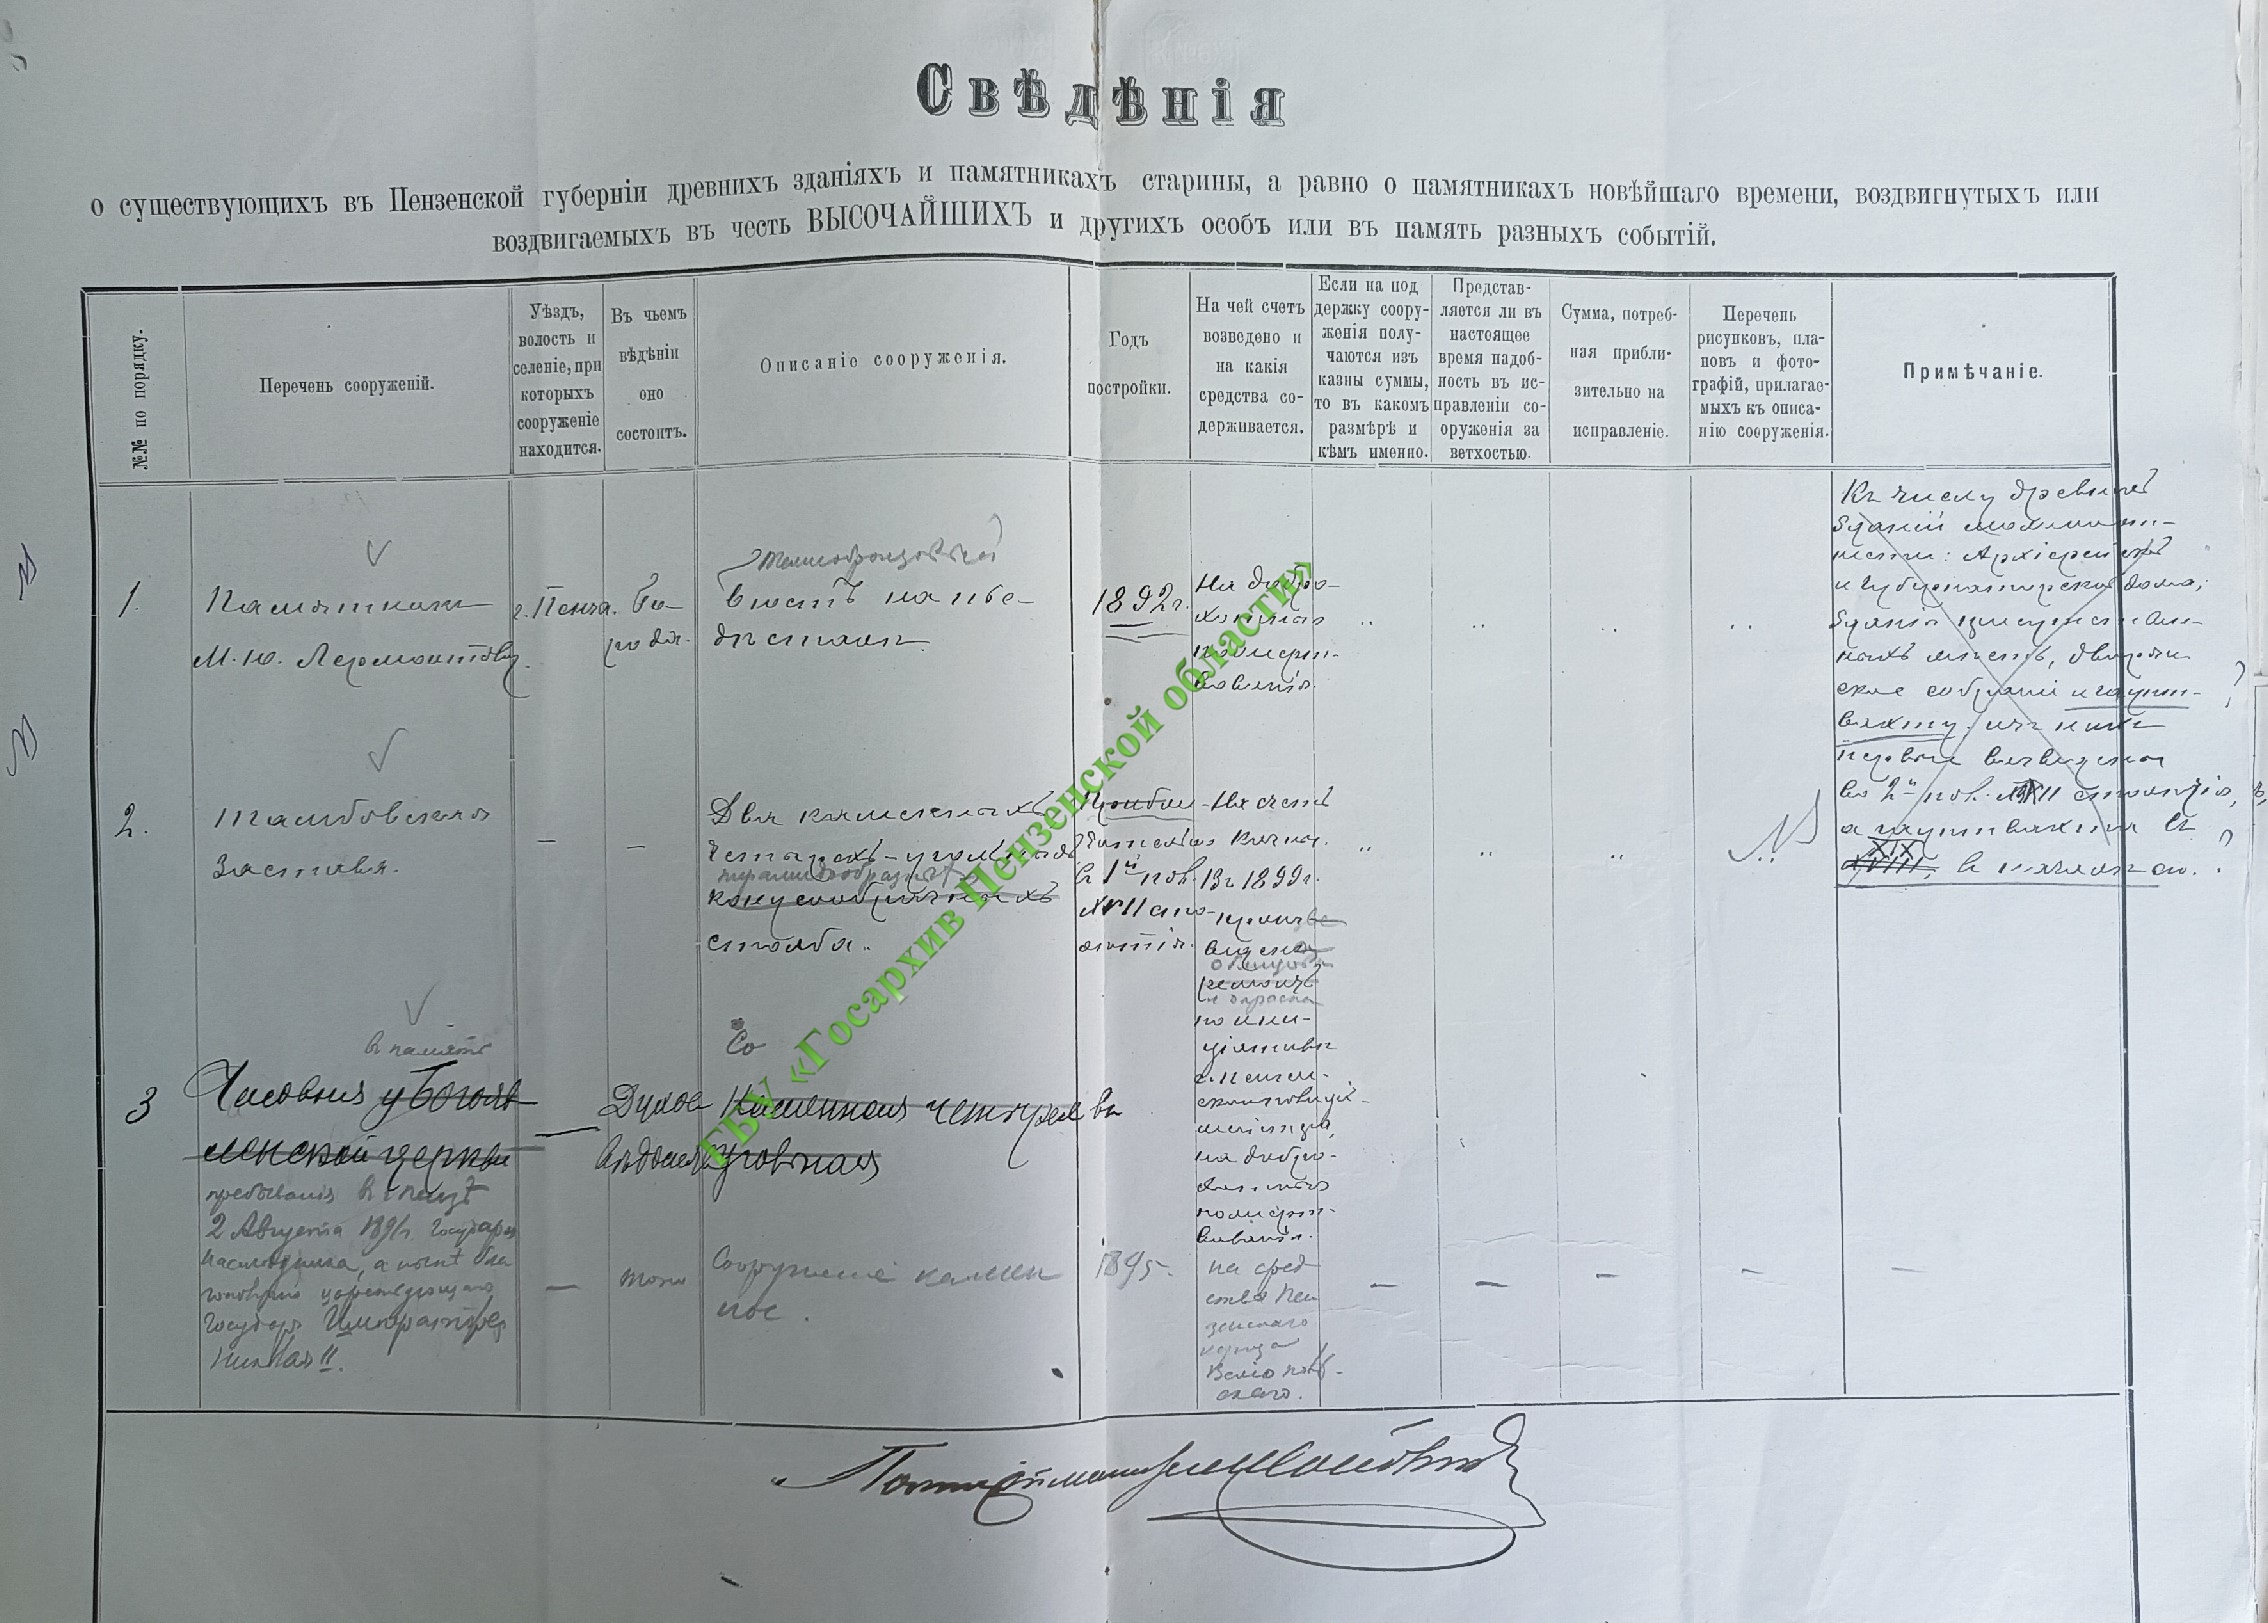 Свѣдѣнія
о существующихъ въ Пензенской губерніи древнихъ зданіяхъ и памятникахъ старины, а равно о памятникахъ новѣйшаго времени, воздвигнутыхъ или
воздвигаемыхъ въ честь ВЫСОЧАЙШИХЪ и другихъ особъ или въ память разныхъ событій.
№№ по порядку.
Перечень сооруженій.
Уѣздъ,
волость и
селеніе, при
которыхъ
сооруженіе
находится.
Въ чьемъ
вѣдѣніи
оно
состоитъ.
Описаніе сооруженія.
Годъ
постройки.
На чей счетъ
возведено и
на какія
средства со-
держивается.
Если на под
держку соору-
женія полу-
чаются изъ
казны суммы,
то въ какомъ
размѣрѣ и
кѣмъ именно.
Представ-
ляется ли въ
настоящее
время надоб-
ность въ ис-
правленіи со-
оруженія за
ветхостью.
Сумма, потреб-
ная прибли-
зительно на
исправленіе.
Перечень
рисунковъ, пла-
новъ и фото-
графій, прилагае-
мыхъ къ описа-
нію сооруженія.
Примѣчаніе.
1.
Памятникъ
М. Ю. Лермонтову.
г. Пенза.
Го-
рода.
бюстъ на пье-
десталѣ.
1892 г.
На добро-
хотныя
пожерт-
вованія.
Къ числу древнихъ
зданій можно от-
нести: Архіерейскій
и Губернаторскій дома,
зданія присутствен-
ныхъ мѣстъ, дворян-
ское собраніе и гаупт-
вахту. изъ нихъ
первыя возведены
во 2й пол. XVIII столѣтія,
а гауптвахта въ
XIX
XVIII, въ началѣ ст. ?
2.
Тамбовская
застава.
—
—
Два каменныхъ
четырехъ-угольныхъ
пирамидообразныхъ
конусообразныхъ
столба.
Прибли-
зительно
въ 1й пол.
XVIII сто-
лѣтія.
На счетъ
казны.
Въ 1899 г.
произве
денъ
ремонтъ
и окраска
по ини-
ціативѣ
г. Пензен-
скаго полицій-
мейстера,
на добро-
вольныя
пожерт-
вованія.
3
въ память
Часовня у Богояв
ленской церкви
пребыванія въ Пензѣ
2 Августа 189 г. Государя
Наслѣдника, а нынѣ бла
гополучно царствующаго
Государя Императора
Николая II.
—
Духов
вѣдомст
Каменная четырех
угольная
—
тоже
Сооруженіе камен
ное.
1895.
на сред
ства Пен
зенскаго
купца
—
—
—
—
—
Полиціймейстеръ
ГБУ «Госархив Пензенской области»